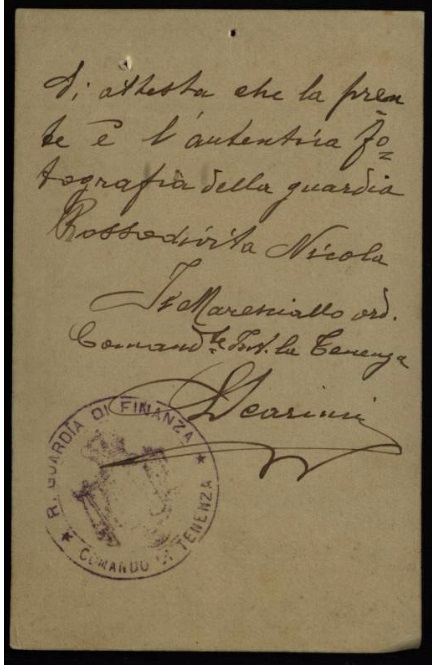 Si attesta che la presen
te è l'autentica fo=
tografia della guardia
Rossodivita Nicola
Il Maresciallo ord.
Comand.te Int. la Tenenza
Scarini
R. GUARDIA DI FINANZA
COMANDO LA TENENZA